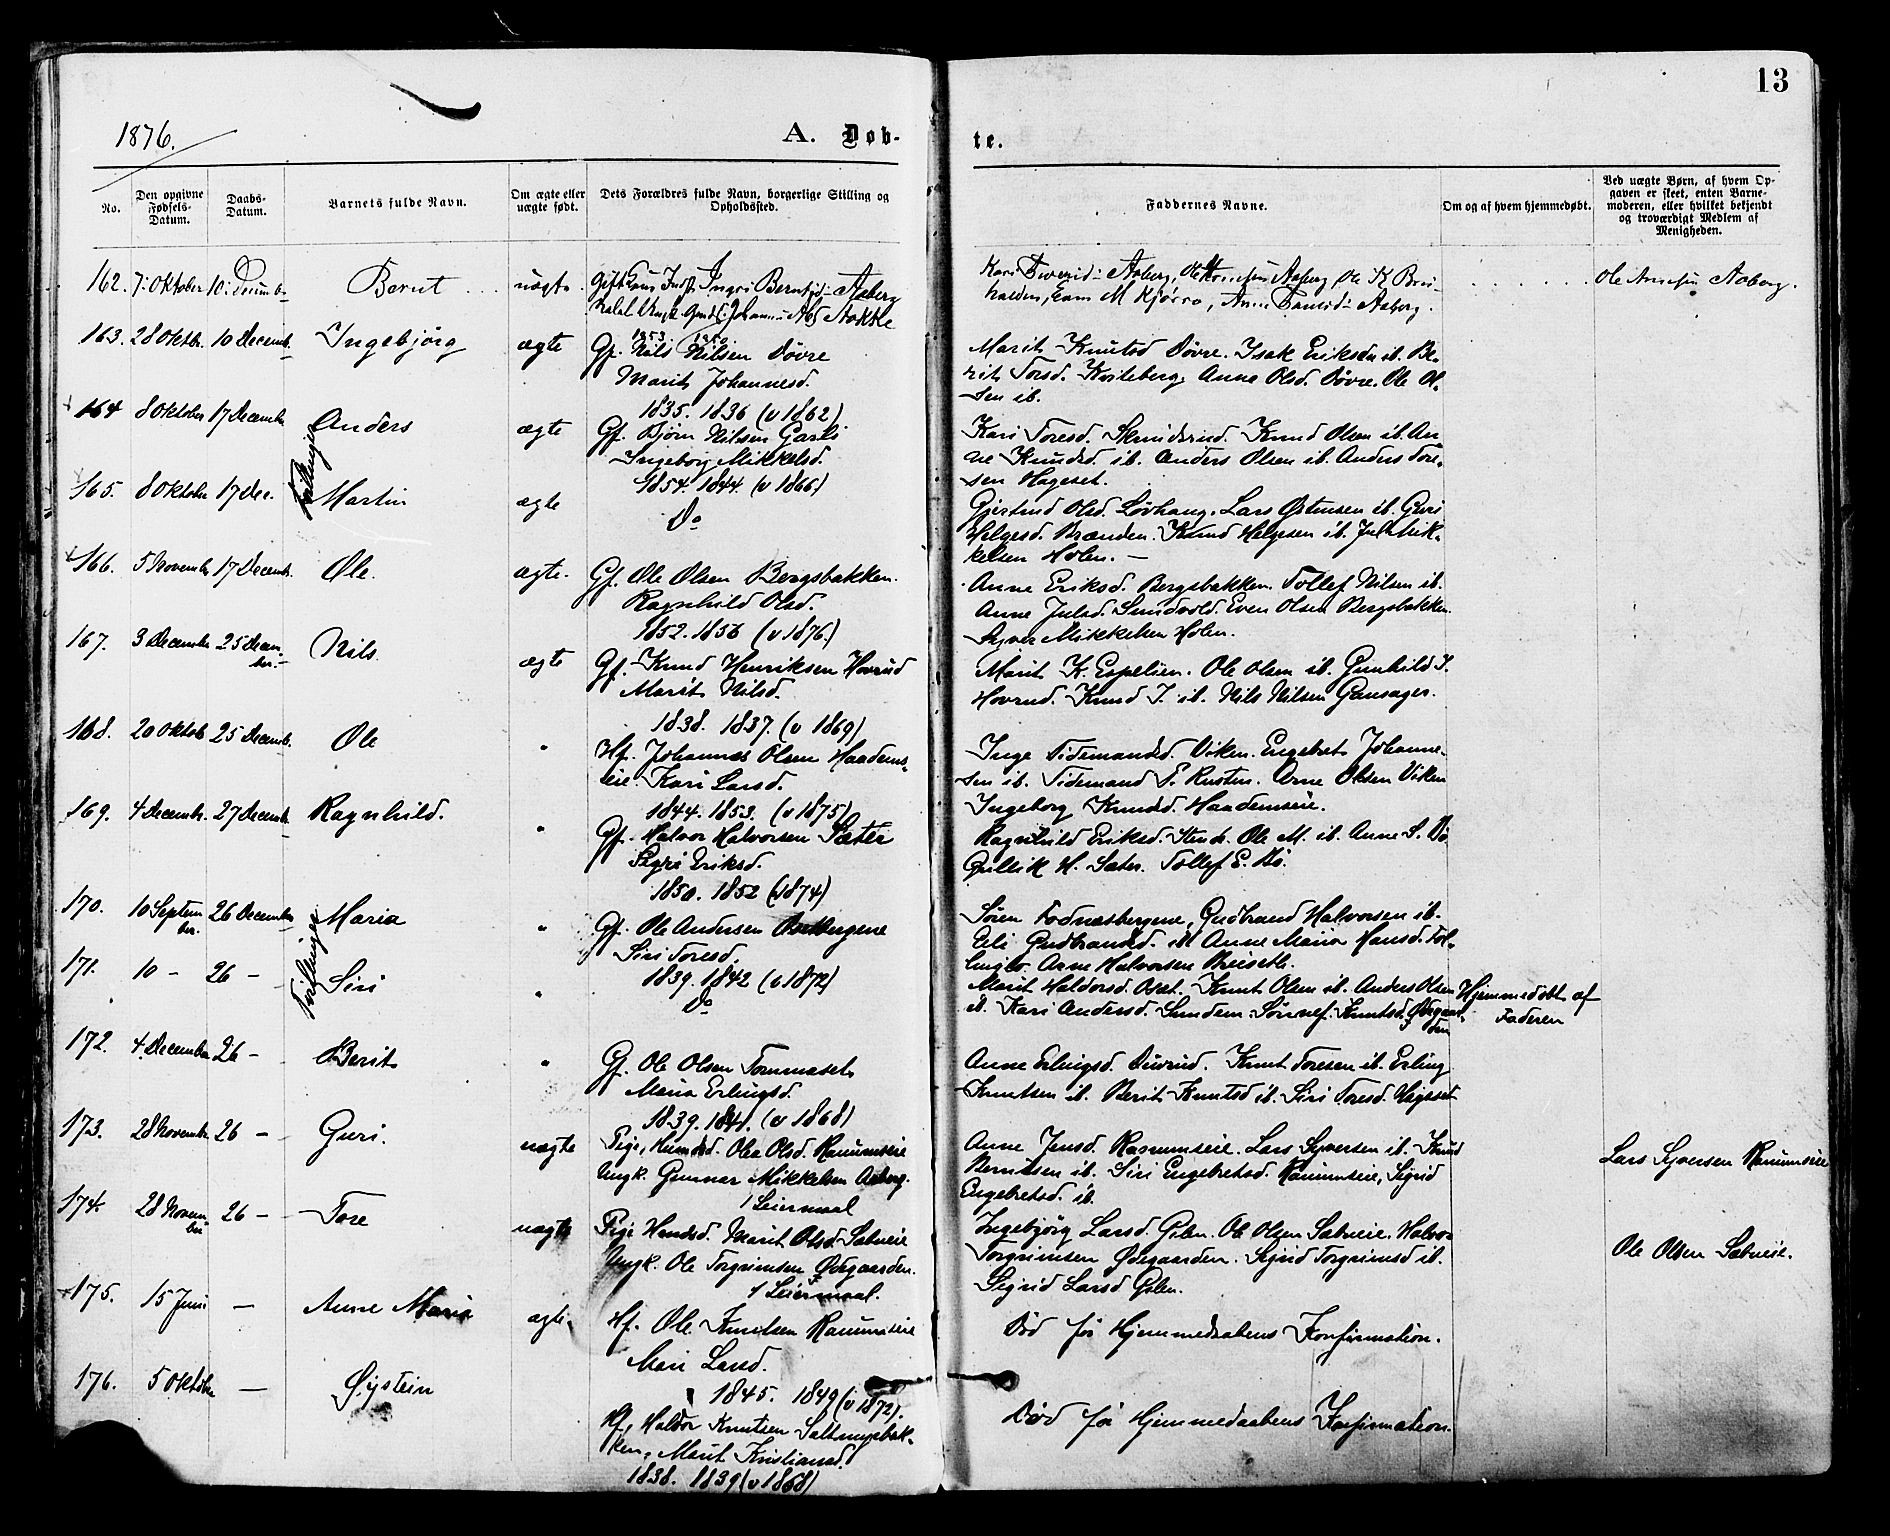 13
1876.
A. Døb-
te.
No.
Den opgivne Fødsels-Datum.
Daabs-Datum.
Barnets fulde Navn.
Om ægte eller uægte født.
Dets Forældres fulde Navn, borgerlige Stilling og Opholdssted.
Faddernes Navne.
Om og af hvem hjemmedøbt.
Ved uægte Børn, af hvem Op-
gaven er skeet, enten Barne-
moderen, eller hvilket bekjendt
og troværdigt Medlem af
Menigheden.
162. 7: Oktober 10: Decemb Bernt uægte Ole Arnesen Aaberg.
163. 28 Oktbr. 10 Decemb. Ingebjørg ægte Gf. Nils Nilsen Døvre
Marit Johannesd.
1835. 1836 (v 1862)
Marit Knutsd Døvre. Isak Eriksen ib. Be-
rit Torsd. Kviteberg. Anne Olsd. Døvre. Ole Ol-
sen ib.
164 8 Oktober 17 Decembr Anders ægte Gf. Bjørn Nilsen Garli
Ingeborg Mikkelsd.
1854. 1844. (v 1866)
Kari Toresd. Skrindsrud. Knud Olsen ib. An-
ne Knudsd. ib. Anders Olsen ib. Anders Tore-
sen Hageset.
Tvillinger
165. 8 Oktober 17 Dec. Martin ægte Do
Gjertrud Olsd. Løvhaug. Lars Østensen ib. Guri
Helgesd. Brænden. Knud Helgesen ib. Jul Mik-
kelsen Holen.
166. 5 Novembr 17 Decembr. Ole. ægte. Gf. Ole Olsen Bergsbakken.
Ragnhild Olsd.
1852. 1856 (v 1876.)
Anne Eriksd. Bergsbakken. Tollef Nilsen ib.
Anne Julsd. Sundvold. Even Olsen Bergsbakken.
Syver Mikkelsen Holen.
167. 3 Decembr 25 Decem-
ber. Nils ægte Gf. Knud Henriksen Hovrud
Marit Nilsd.
1838. 1837. (v 1869)
Marit K. Espelien. Ole Olsen ib. Gunhild I.
Hovrud. Knud I. ib. Nils Nilsen Gansager.
168. 20 Oktob 25 Decemb. Ole " Hf. Johannes Olsen Haadems-
eie Kari Larsd.
1844. 1853. (v 1875)
Inge Tidemandsd. Viken. Engebret Johanne-
sen ib. Tidemand T. Rusten. Arne Olsen Viken
Ingeborg Knudsd. Haademseie.
169. 4 Decembr. 27 Decembr Ragnhild. " Gf. Halvor Halvorsen Sæter
Sigri Eriksd.
1850. 1852 (1874)
Ragnhild Eriksd. Ole M. ib. Anne S. Bø
Gullik H. Sæter. Tollef E. Bø.
170. 10 Septem
ber. 26 Decembr Maria " Gf. Ole Andersen
Siri Toresd.
1839. 1842 (v 1872)
Gudbrand Halvorsen ib.
Eli Gudbrandsd. ib Anne Maria Hansd.
Arne Halvorsen
Tvillinger
171. 10 - 26 - Siri " Do
Marit Haldorsd. Knut Olsen ib. Anders Olsen
ib. Kari Andersd. Sundem. Knutsd. Ødegaar-
den
Hjemmedøbt af
Faderen
172. 4. December 26 - Berit " Gf. Ole Olsen Tommaset
Maria Erlingsd.
1839. 1841. (v 1868)
Anne Erlingsd. Knut Toresen ib. Erling
Knutsen ib. Berit Knutsd ib. Siri Toresd. Hageset
173. 28 Novembr 26 - Guri. uægte Pige, Huusd. Olea Olsd. Ranumseie
Ungk. Gunnar Mikkelsen Aaberg.
1 Leiermaal
Anne Jensd. Ranumseie. Lars Syversen ib. Knud
Berntsen ib. Siri Engebretsd. Ranumseie, Sigrid
Engebretsd. ib.
Lars Syversen Ranumseie
174. 28 Novem-
ber 26 - Tore uægte Pige Huusd. Marit Olsd. Sæbueie
Ungk. Ole Torgrimsen Ødegaarden.
1 Leiermaal.
Ingebjørg Larsd. Ole Olsen Sæbueie. Halvor
Torgrimsen Ødegaarden. Sigrid Torgrimsd ib.
Sigrid Larsd.
Ole Olsen Sæbueie.
175. 15 Juni - Anne Maria ægte Hf. Ole Knutsen Ranumseie
Mari Larsd.
1845. 1849 (v 1872).
Død før Hjemmedaabens Konfirmation.
176. 5 Oktober - Øistein Hf. Haldor Knutsen
Marit Kristiansd.
1838. 1839 (v 1868)
Død før Hjemmedaabens Konfirmation.